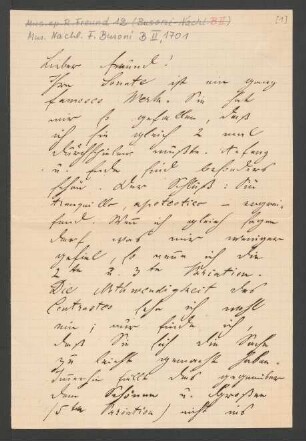 Mus. ep. R. Freund 18 (Busoni-Nachl. B II)
Mus. Nachl. F. Busoni B II, 1701
[1]
Lieber Freund!
Ihre Sonate ist ein ganz
famoses Werk. Sie hat
mir so gefallen, daß
ich sie gleich 2 mal
durchspielen mußte. Anfang
u. Ende sind besonders
schön. Der Schluß: ein
tranquillo, apoteotico – ergrei-
fend. Wenn ich gleich sagen
darf was mir weniger
gefiel, so nenne ich die
2te u. 3te Variation.
Die Nothwendigkeit des
Contrastes sehe ich wohl
ein; mir finde ich,
daß Sie sich die Sache
zu leicht gemacht haben.
das gegenüber
dem Schönen u. Großen
(5te Variation) nicht ins